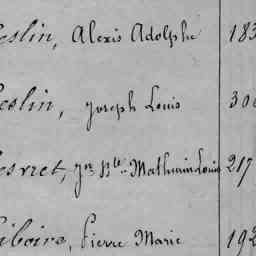 eslin, Alexis Adolphe 183
eslin, Joseph Louis 30
esret, Jn Bte Mathurin Louis 217
iboire, Pierre Marie 192